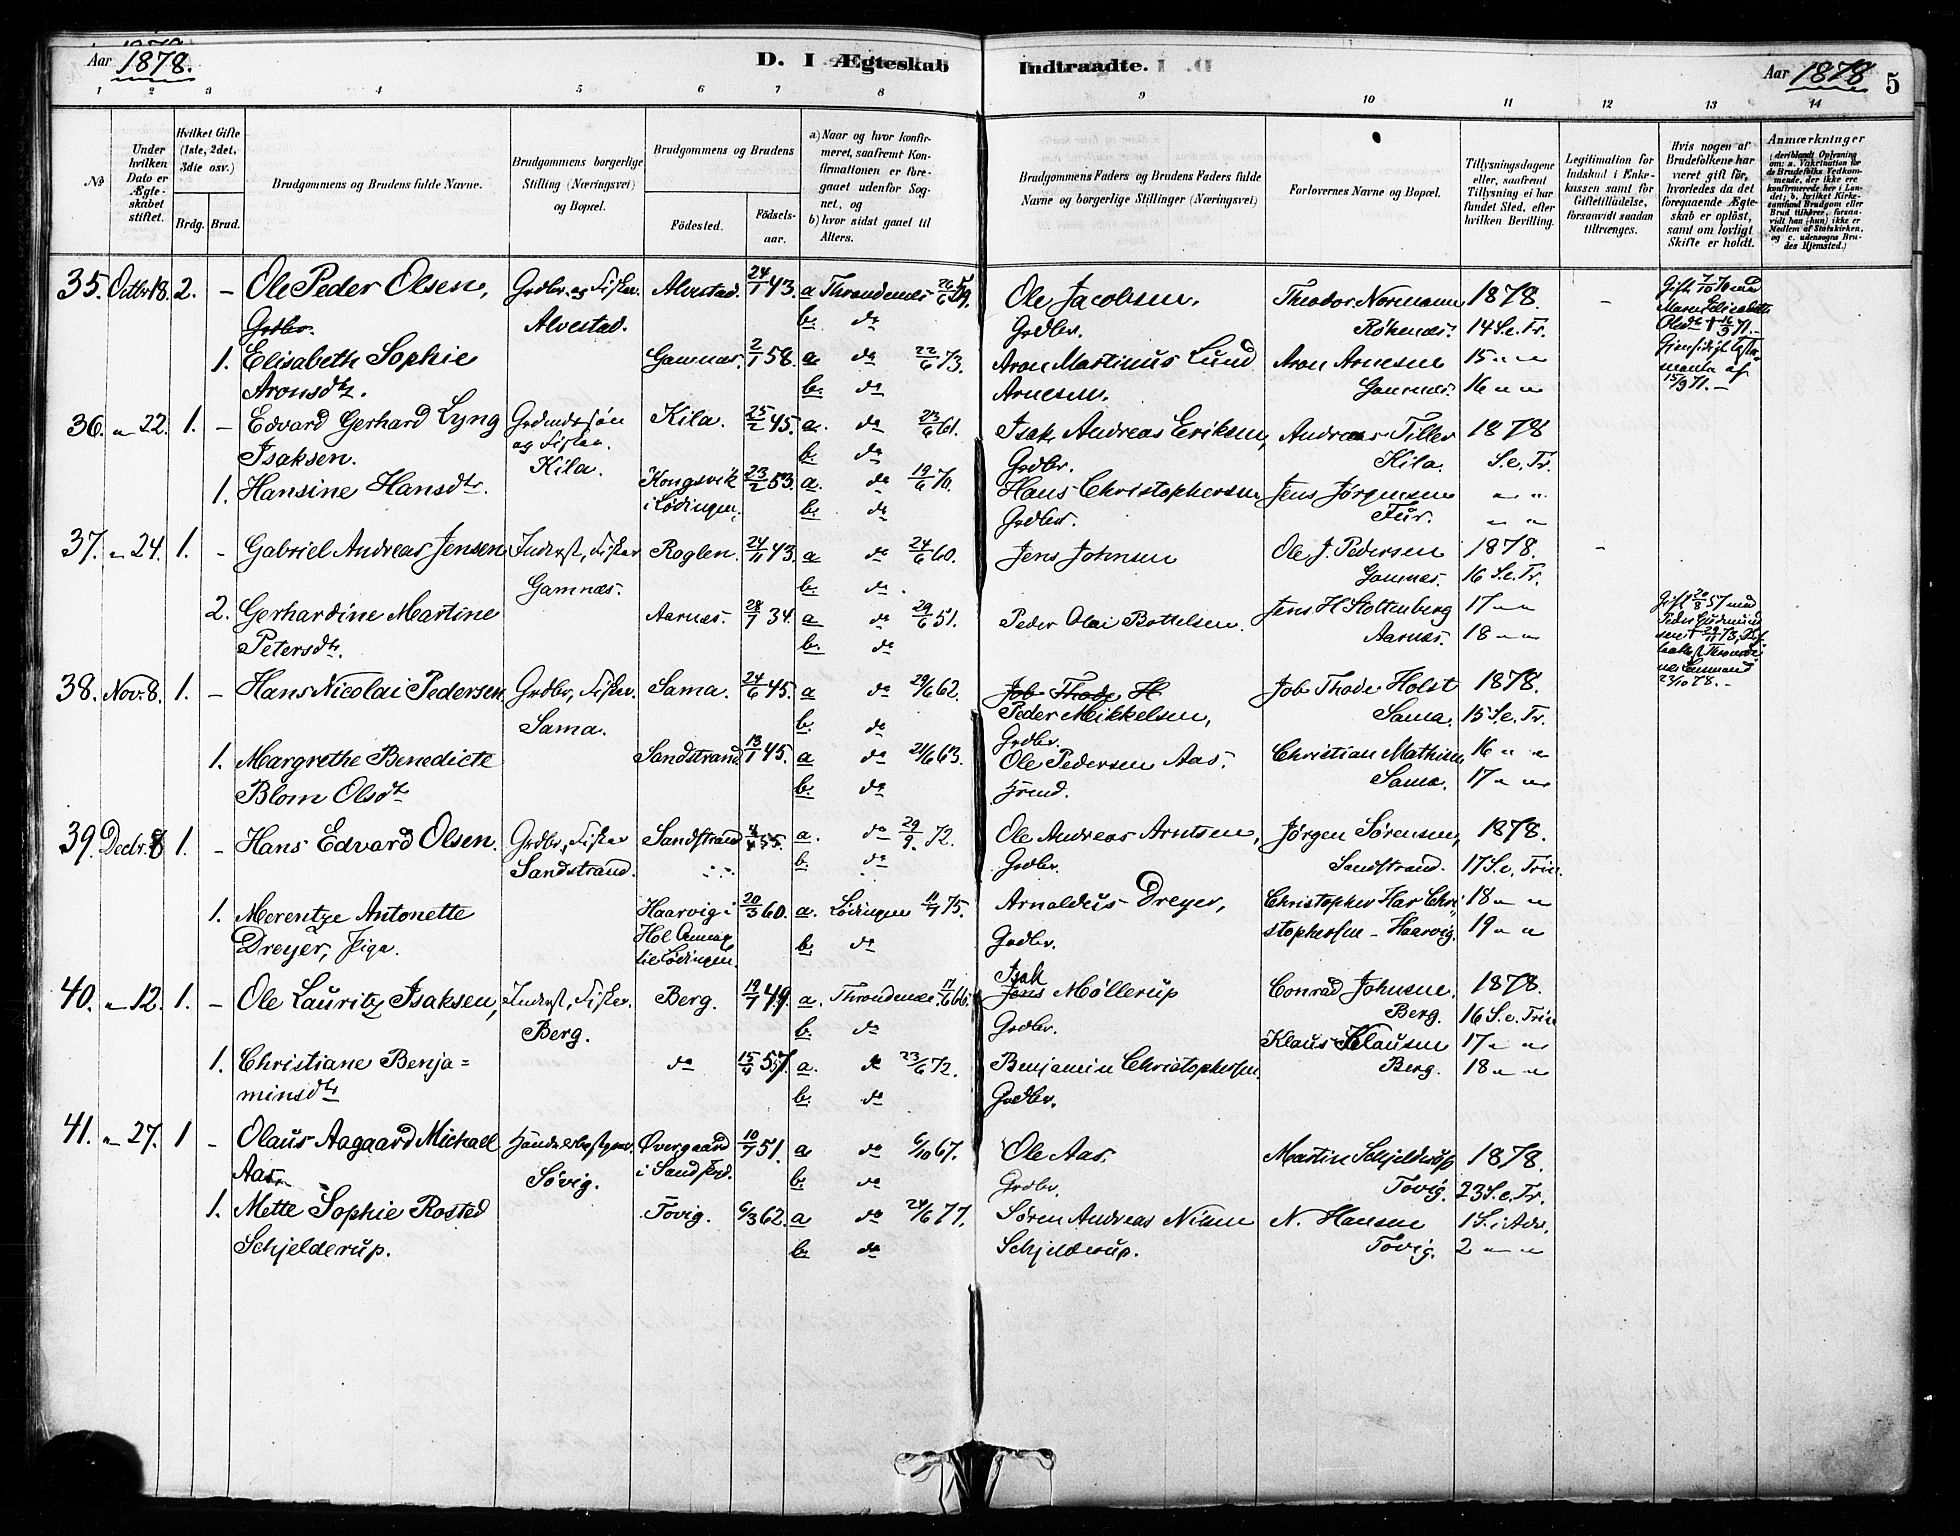 Aar 1878.
D. I Ægteskab Indtraadte.
Aar 1878 5
1 2 3 4 5 6 7 8 9 10 11 12 13 14
No
Under hvilken Dato er Ægteskabet stiftet.
Hvilket Gifte (1ste, 2det, 3die osv.)
Brdg. Brud.
Brudgommens og Brudens fulde Navne.
Brudgommens borgerlige Stilling (Næringsvei) og Bopæl.
Brudgommens og Brudens
Fødested. Fødselsaar.
a) Naar og hvor konfirmeret, saafremt Konfirmationen er foregaaet udenfor Sognet, og
b) hvor sidst gaaet til Alters.
Brudgommens Faders og Brudens Faders fulde Navne og borgerlige Stillinger (Næringsvei)
Forlovernes Navne og Bopæl.
Tillysningsdagene eller, saafremt Tillysning ei har fundet Sted, efter hvilken Bevilling.
Legitimation for Indskud i Enkekassen samt for Giftetilladelse, forsaavidt saadan tiltrænges.
Hvis nogen af Brudefolkene har været gift før, hvorledes da det foregaaende Ægteskab er opløst, samt om lovligt Skifte er holdt.
Anmærkninger
(deriblandt Oplysning om: a. Vakcination for de Brudefolks Vedkommende, der ikke ere konfirmerede her i Landet; b. hvilket Kirkesamfund Brudgom eller Brud tilhører, forsaavidt han (hun) ikke er Medlem af Statskirken, og c. udensogns Brudes Hjemsted.)
35. Octbr 18. 2. – Ole Peder Olsen, Grdbr. og Fisker. Alvestad. 24/1 43. a Throndenæs Ole Jacobsen, Theodor Normann 1878 – Gift 7/10 70 med
Grdbr. Alvestad. b. do Grdbr. Røkenæs. 14 S.e.Tr. Maren Elisabeth
1. Elisabeth Sophie Gamnæs. 2/1 58. a. do 22/6 73. Aron Martinus Lund Aron Arnesen 15 " " Olsdtr † 16/3 71. –
Aronsdtr. b. do Arnesen. Gamnæs. 16 " " 15/9 71. –
36. " 22. 1. – Edvard Gerhard Lyng Grdmdssøn Kila. 25/2 45. a. do 23/6 61. Isak Andreas Eriksen, Andreas Tiller 1878
Isaksen. og Fisker. Kila. b. do Grdbr. Kila. S.e.Tr.
1. Hansine Hansdtr. Kongsvik i Lødingen, 23/2 53. a. do 19/6 70. Hans Christophersen Jens Jørgensen " "
b. do Grdbr. " "
37. " 24. 1. – Gabriel Andreas Jensen Inderst, Fisker Roglen. 24/11 43. a do 24/6 60. Jens Johnsen Ole J. Pedersen 1878. –
Gamnæs. b. do. Gamnæs. 16 S.e.Tr.
2. Gerhardine Martine Aarnæs. 28/7 34. a do 29/6 51. Peder Olai Bottelsen. Jens H Stoltenberg 17 " " Gift 20/8 57 med
Petersdtr. b. do Aarnæs. 18 " "
38. Nov. 8. 1. – Hans Nicolai Pedersen. Grdbr, Fisker. Sama. 24/6 45. a do 29/6 62. Job Thode H Job Thode Holst 1878. 23/10 78. –
Sama. b. do Peder Mikkelsen, Sama. 15 S.e.Tr.
Grdbr.
1. Margrethe Benedicte Sandstrand 13/1 45. a do 21/6 63. Ole Pedersen Aas. Christian Mathisen 16 " "
Blom Olsdtr b. do Sama. 17 " "
39. Decbr. 8 1. – Hans Edvard Olsen. Grdbr, Fisker Sandstrand 55. a. do 29/9. 72. Ole Andreas Arntsen, Jørgen Sørensen, 1878.
Sandstrand. b. do Grdbr. Sandstrand. 17 S.e. Trin.
1. Merentze Antonette Haarvig i 20/3 60. a. Lødingen 11/7 75. Arnoldus Dreyer, Christopher Har Chri 18 " "
Dreyer, Pige. Hol Annex til Lødingen. b. do Grdbr. stophersen – Haarvig. 19 " "
40. " 12. 1. – Ole Lauritz Isaksen, Inderst, Fisker. Berg. 19/7 49. a. Throndenæs. 17/6 66. Isak Møllerup Conrad Johnsen. 1878.
Berg. b. do Grdbr. Berg. 16 S.e. Trin
1. Christiane Benja= do 15/6 57. a. do 23/6 72. Benjamin Christophersen. Klaus Klausen 17 " "
minsdtr b. do Grdbr. Berg. 18 " "
41. " 27. 1 – Olaus Aagaard Michael Søvig. Øvergaard 10/7 51. a do 6/10 67. Ole Aas, Martin Schjelderup 1878.
Aas. i Sandfjrd. b. do Grdbr. Tovig. 23 S.e.Tr.
1. Mette Sophie Rosted Tovig. 6/3 62. a do 24/6 77. Søren Andreas N. Hansen 1 S. i Adv.
Schjelderup. b. do Schjelderup. Tovig. 2 " "